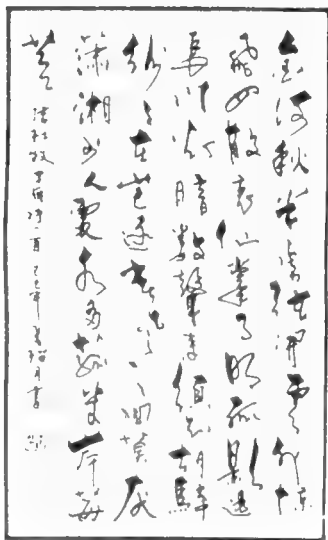 金河秋半虜弦開雲外驚
飛四散哀仙掌月明孤影過
長門燈暗數聲來須知胡騎
紛々在豈逐春風一一回莫厭
瀟湘少人處水多菰米岸莓
苔 杜牧早雁詩一首 己巳年 月書